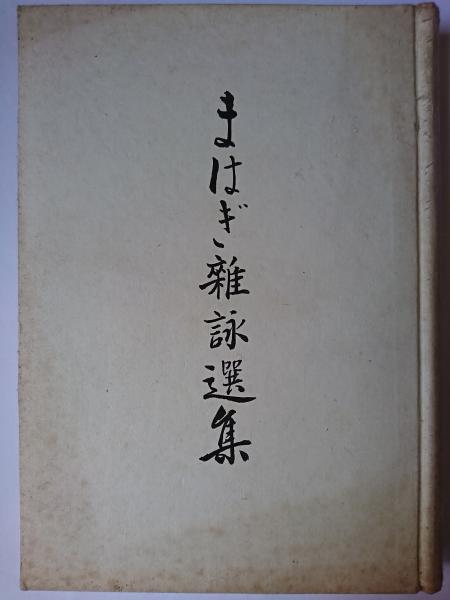 まはぎ雜詠選集